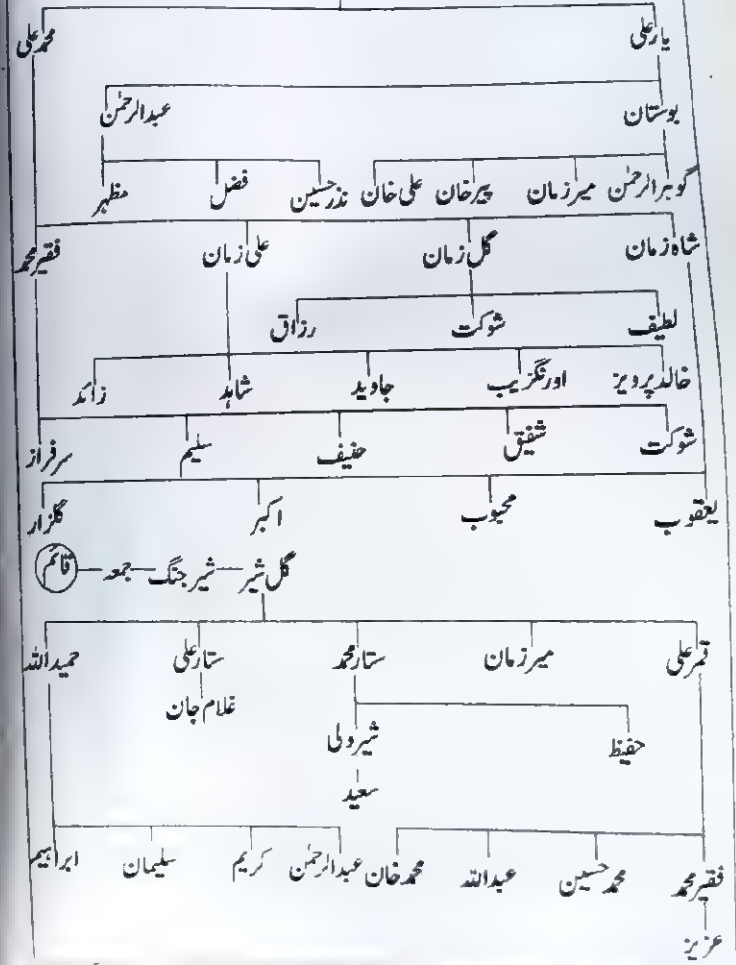 یار علی محمد علی
بوستان عبدالرحمٰن
گوہرالرحمٰن میرزمان پیرخان علی خان نذرحسین فضل مظہر
شاہ زمان گل زمان علی زمان فقیرمحمد
لطیف شوکت رزاق
خالد پرویز اورنگزیب جاوید شاہد زائد
شوکت شفیق حنیف سلیم سرفراز
یعقوب محبوب اکبر گلزار
گل شیر شیر جنگ جمعہ قائم
قمرعلی میرزمان ستارمحمد ستارعلی حمیداللہ
غلام جان
حفیظ شیرولی
سعید
فقیرمحمد محمدحسین عبداللہ محمدخان عبدالرحمٰن کریم سلیمان ابراہیم
عزیز